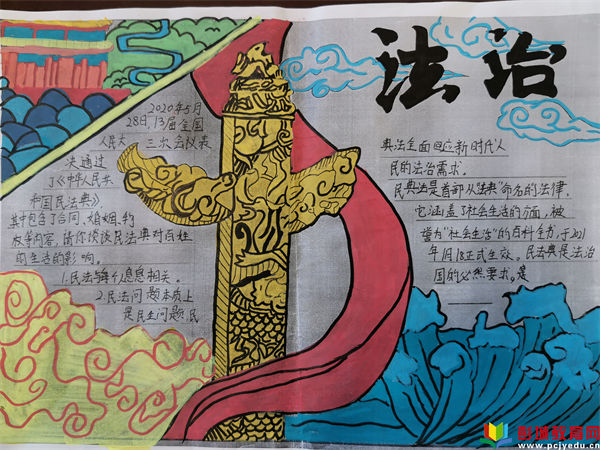 法治
2020年5月
28日,13届全国
人民大
三次会议表
决通过
了《中华人民共
和国民法典》
其中包含了合同、婚姻、
权等内容,请你谈谈民法典对百姓
的生活的影响。
1.民法与每个人息息相关。
2.民法问题本质上
是民生问题,民
典法全面回应新时代人
民的法治需求。
民典法是首部从"法典"命名的法律,
它涵盖了社会生活的方面,被
誉为"社会生活"的百科全方,于2021
年1月1日正式生效。民法典是法治
国的必然要求。是
彭城教育网
www.pcjyedu.cn